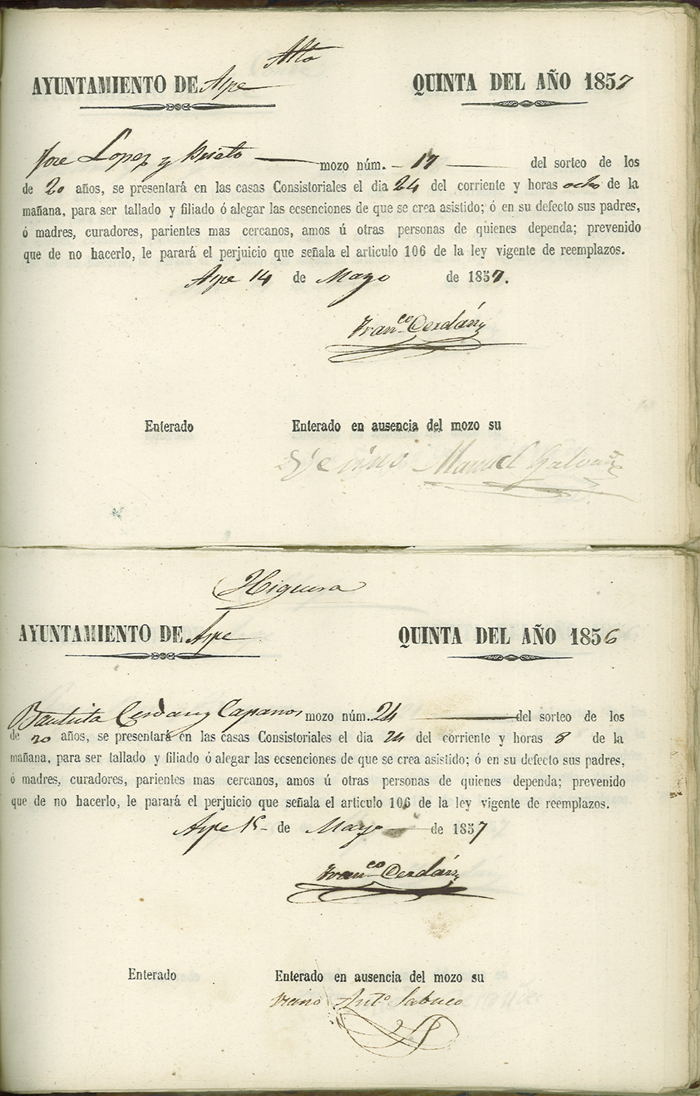 Alto
AYUNTAMIENTO DE Aspe QUINTA DEL AÑO 1857
Jose Lopez y Prieto mozo núm. 17 del sorteo de los
de 20 años, se presentará en las casas Consistoriales el dia 24 del corriente y horas ocho de la
mañana, para ser tallado y filiado ó alegar las ecsenciones de que se crea asistido; ó en su defecto sus padres,
ó madres, curadores, parientes mas cercanos, amos ú otras personas de quienes dependa; prevenido
que de no hacerlo, le parará el perjuicio que señala el articulo 106 de la ley vigente de reemplazos.
Aspe 14 de Mayo de 1857.
Fran.co Cerdán
Enterado Enterado en ausencia del mozo su
Vecino Manuel Galvañ
Higuera
AYUNTAMIENTO DE Aspe QUINTA DEL AÑO 1856
Bautista Cerdan y Capanos mozo núm. 24 del sorteo de los
de 20 años, se presentará en las casas Consistoriales el dia 24 del corriente y horas 8 de la
mañana, para ser tallado y filiado ó alegar las ecsenciones de que se crea asistido; ó en su defecto sus padres,
ó madres, curadores, parientes mas cercanos, amos ú otras personas de quienes dependa; prevenido
que de no hacerlo, le parará el perjuicio que señala el articulo 106 de la ley vigente de reemplazos.
Aspe de Mayo de 1857
Fran.co Cerdán
Enterado Enterado en ausencia del mozo su
Ant.o Sabuco